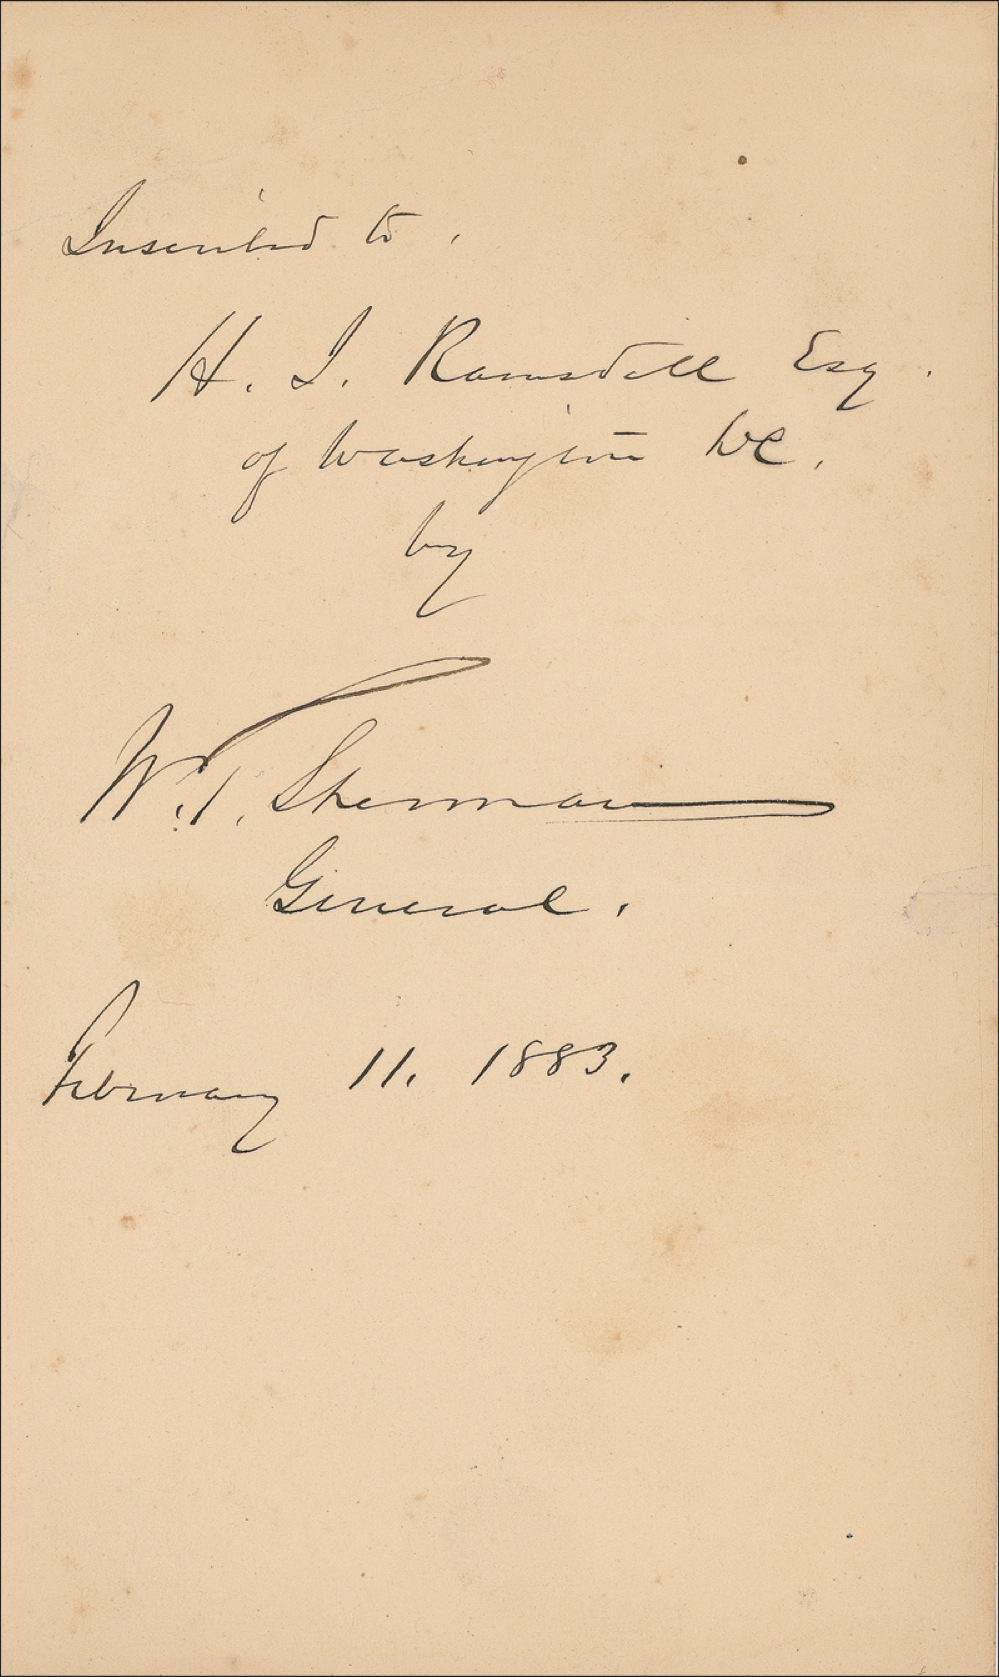 Inscribed to,
H. J. Ramsdell Esq.
of Washington DC.
by
W. T. Sherman
General.
February 11. 1883.